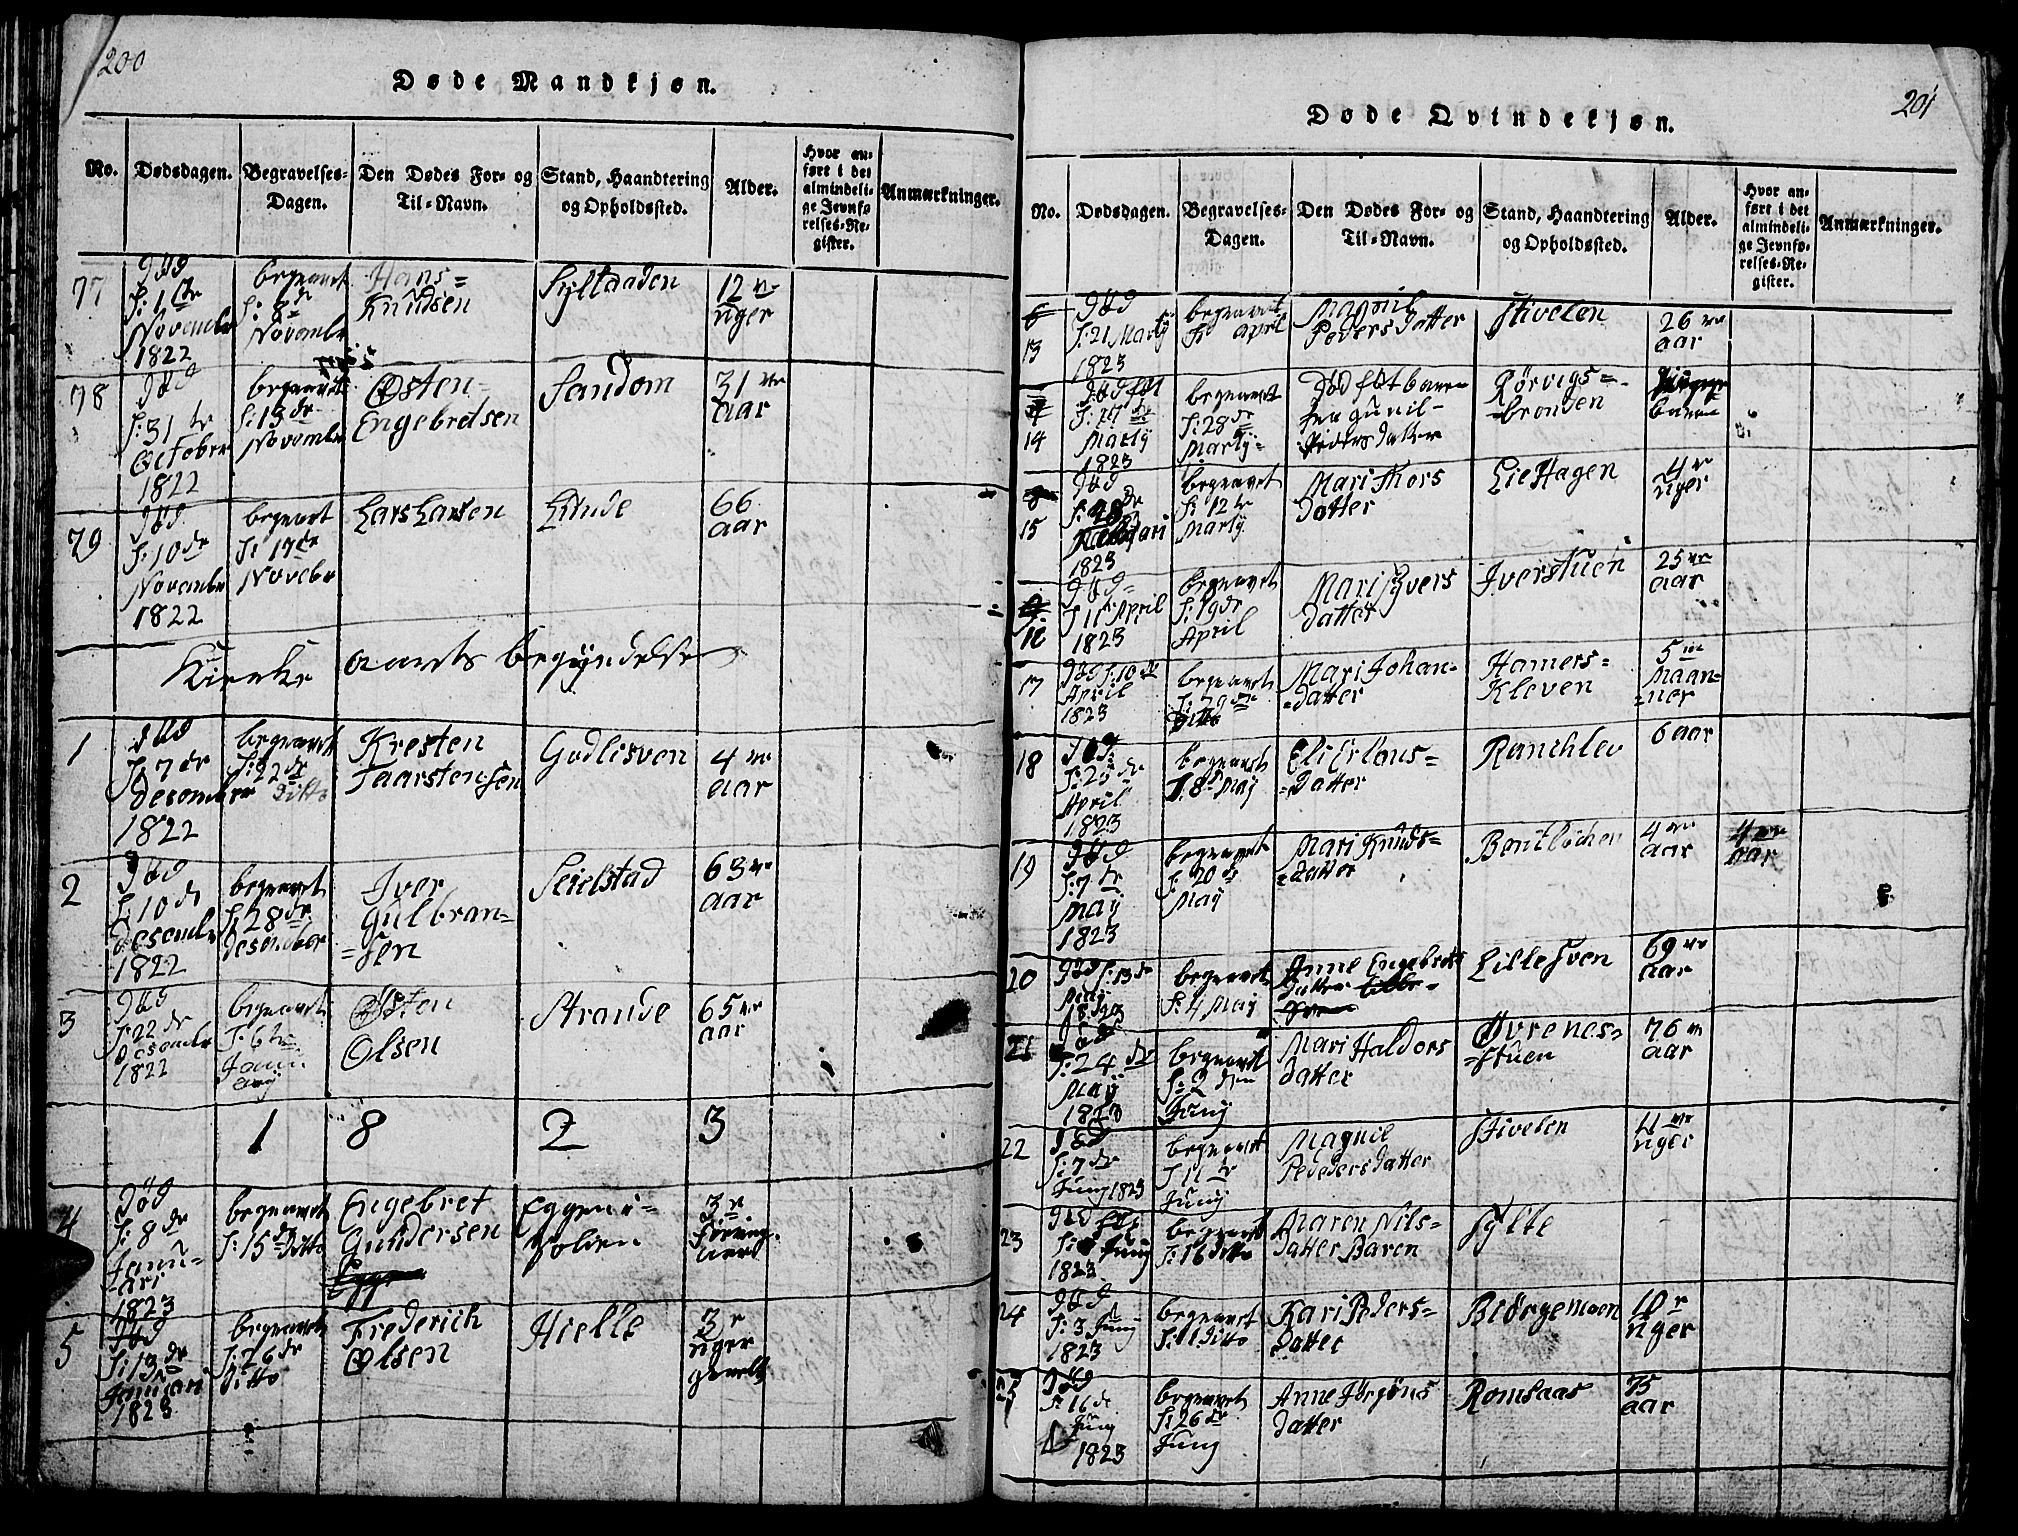 200
Døde Mandkjøn.
No.
Dødsdagen.
Begravelses-
Dagen.
Den Dødes For- og
Til-Navn.
Stand, Haandtering
og Opholdssted.
Alder.
Hvor an-
ført i det
almindeli-
ge Jevnfø-
relses-Re-
gister.
Anmærkninger.
77
død
November
1822
begravet
November
Hans=
Knudsen
Syltaaden
12 ur
uger
78
død
d: 31 te
October
1822
begravet
d: 13 de
November
Østen-
Engebretsen
Sandom
31 ur
aar
79
død
d: 10 de
November
1822
begravet
d: 17 de
Novebr
Lars Larsen
Linde
66
aar
Kirke aarets begyndelse
1
død
d: 7 de
desember
1822
begravet
d: 22 de
ditto
Kresten
Taarstensen
Godlisven
4 ur
aar
2
død
d: 10 de
desember
1822
begravet
d: 28 de
desember
Iver
Gulbran=
=sen
Seielstad
63 ur
aar
3
død
d: 22 de
desember
1822
begravet
d: 6 te
Østen
Olsen
Strande
65 ur
aar
1 8 2 3
4
død
d: 8 de
Janu=
=ari
1823
begravet
d: 15 ditto
Engebret
Gundersen
Eggen i=
Solien
3 r
5
død
d: 19 de
Januari
1823
begravet
d: 26 de
ditto
Frederich
Olsen
Hielle
3 r
uger
gamelt
201
Døde Qvindekjøn.
No.
Dødsdagen.
Begravelses-
Dagen.
Den Dødes For- og
Til-Navn.
Stand, Haandtering
og Opholdssted.
Alder.
Hvor an-
ført i det
almindeli-
ge Jevnfø-
relses-Re-
gister.
Anmærkninger.
13
død
d: 21 Martij
1823
begravet
April
Magnil
Peders datter
Stivelen
26 ur
aar
14
Martij
1823
begravet
d: 28 de
Martij=
død født baren
Peders datter
Rørvigs=
=bronden
baren
15
død
1823
begravet
d: 12 te
Martij
Mari Thors
datter
Lie Hagen
4 ur
uger
16
død
April
1823
begravet
d: 19 de
April
Mari Ivers
datter
Iverstuen
25 ur
aar
17
død d: 10 de
April
1823
begravet
d: 29 de
ditto
Mari Johan=
=datter
Hamers=
Kleven
5 m
maan=
=ner
18
død
d: 25 de
April
1823
begravet
8 de Maij
Eli Erlans=
=datter
Ranehlev
6 aar
19
død
d: 7 de
Maij
1823
begravet
d: 20 de
Maij
Mari Knuds=
=datter
4 ur
aar
4 ur
aar
20
død d: 13 de
Maij
1823
begravet
d: 4 Maij
Anne Engebrets
datter
Lillesven
69 ur
aar
21
død
d: 24 de
Maij
1823
begravet
d: 2 den
Junij
Mari Haldors
datter
Øvrenes=
=stuen
76 ur
aar
22
død
d: 7 de
Junij 1823
begravet
d 11 te
Junij
Magnil
Peders datter
Stivelen
11 ur
uger
23
død
Junij
1823
begravet
d: 16 ditto
Maren Nils=
datter Baren
Sylte
24
død
d: 3 Junij
1823
begravet
ditto
Kari Peders=
datter
Biørgemoen
10 r
uger
25
død
d: 16 de
Junij
1823
begravet
d: 26 de
Junij
Anne Jørgens
datter
Romsaas
75
aar